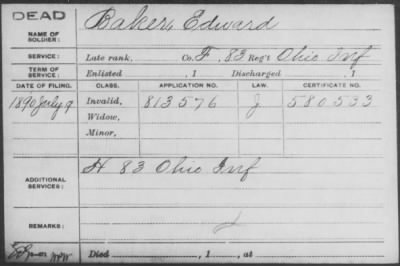 DEAD
NAME OF SOLDIER:
Baker, Edward
SERVICE:
Late rank, Co. F, 83 Reg't Ohio Inf
TERM OF SERVICE:
Enlisted , 1 Discharged , 1
DATE OF FILING. CLASS. APPLICATION NO. LAW. CERTIFICATE NO.
1890 July 9 Invalid, 813576 J 580533
Widow,
Minor,
ADDITIONAL SERVICES:
H 83 Ohio Inf
REMARKS:
Died , 1 , at